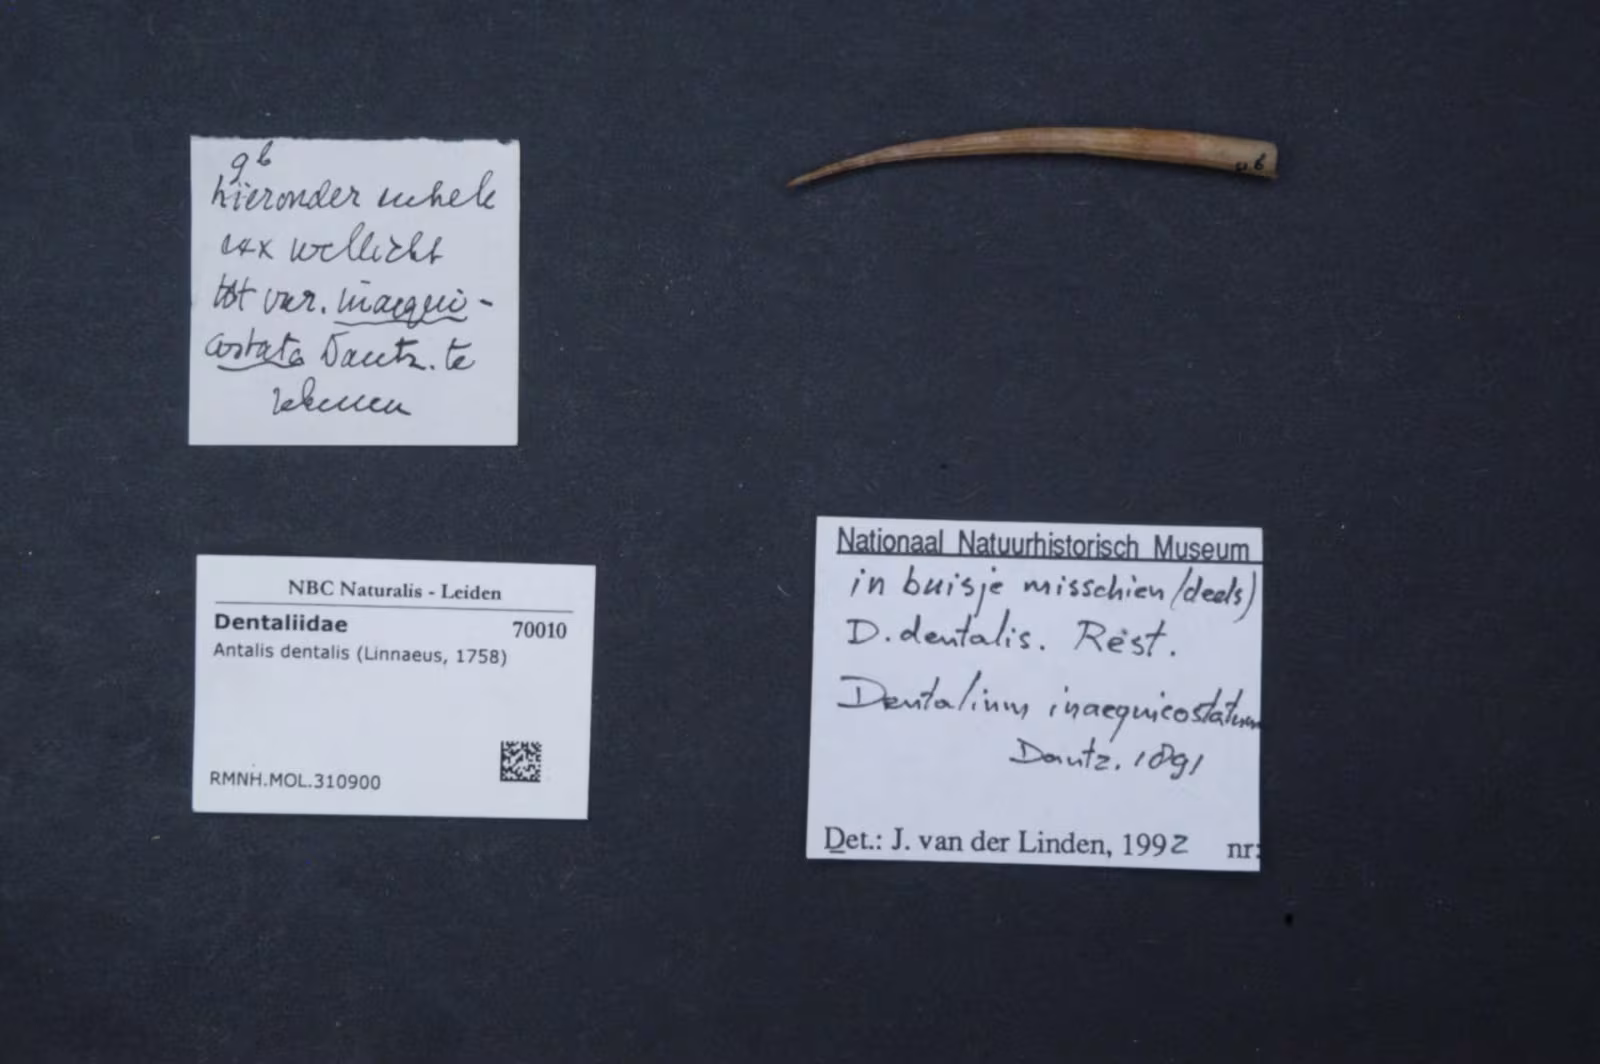 9b
hieronder enkele
ex wellicht
tot var. inaequi-
costata Dautz. te
rekenen
u b
NBC Naturalis - Leiden
Dentaliidae 70010
Antalis dentalis (Linnaeus, 1758)
RMNH.MOL.310900
Nationaal Natuurhistorisch Museum
in buisje misschien (deels)
D. dentalis. Rest.
Dentalium inaequicostatum
Dautz. 1891
Det.: J. van der Linden, 1992 nr: